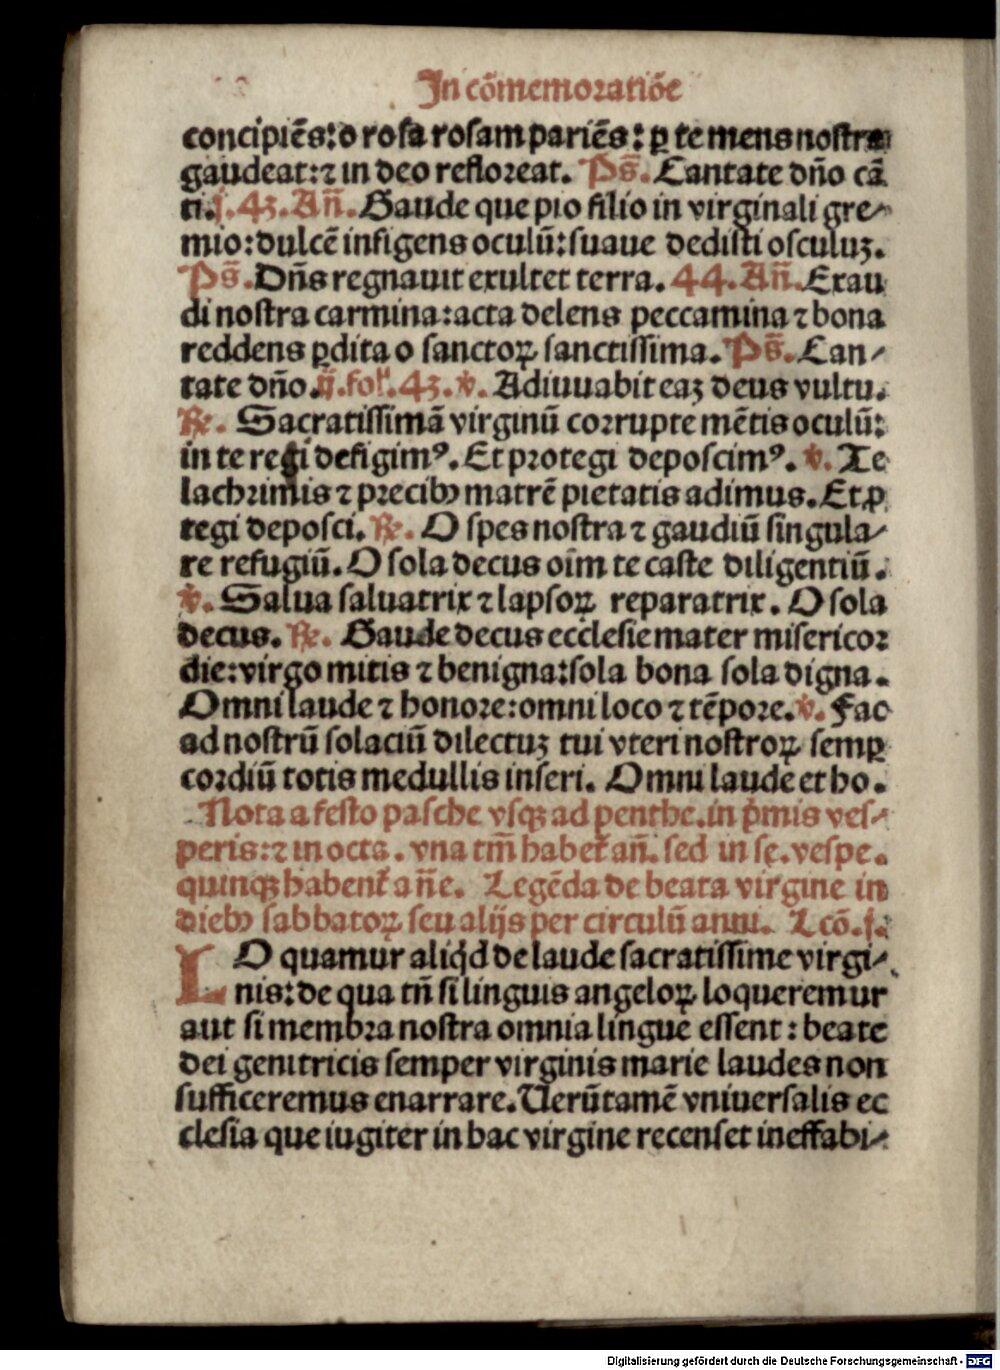 In cõmemoratiõe
concipiẽs: o rosa rosam pariẽs: ꝑ te mens nostra
gaudeat: ⁊ in deo refloreat. Ps̄. Cantate dño cã
ti. j. 43. Añ. Gaude que pio filio in virginali gre⸗
mio: dulcẽ infigens oculũ: suaue dedisti osculuꝫ.
Ps̄. Dñs regnauit exultet terra. 44. Añ. Exau
di nostra carmina: acta delens peccamina ⁊ bona
reddens ꝑdita o sanctoꝝ sanctissima. Ps̄. Can⸗
tate dño. ij. fol. 43. ℣. Adiuuabit eaꝫ deus vultu.
℞. Sacratissimã virginũ corrupte mẽtis oculũ:
in te regi defigimꝰ. Et protegi deposcimꝰ. ℣. Te
lachrimis ⁊ precibꝰ matrẽ pietatis adimus. Et ꝓ
tegi deposci. ℞. O spes nostra ⁊ gaudiũ singula⸗
re refugiũ. O sola decus oĩm te caste diligentiũ.
℣. Salua saluatrix ⁊ lapsoꝝ reparatrix. O sola
decus. ℞. Gaude decus ecclesie mater misericor
die: virgo mitis ⁊ benigna: sola bona sola digna.
Omni laude ⁊ honore: omni loco ⁊ tẽpore. ℣. Fac
ad nostrũ solaciũ dilectuꝫ tui vteri nostroꝝ semꝑ
cordiũ totis medullis inseri. Omni laude et ho.
Nota a festo pasche vsqꝫ ad penthe. in p̃mis ves⸗
peris: ⁊ in octa. vna tm̃ habet᷑ añ. sed in se. vespe.
quinqꝫ habent᷑ añe. Legẽda de beata virgine in
diebꝰ sabbatoꝝ seu alijs per circulũ anni. Lcõ. j.
LO quamur aliq̇d de laude sacratissime virgi⸗
nis: de qua tñ si linguis angeloꝝ loqueremur
aut si membra nostra omnia lingue essent: beate
dei genitricis semper virginis marie laudes non
sufficeremus enarrare. Uerũtamẽ vniuersalis ec
clesia que iugiter in hac virgine recenset ineffabi⸗
Digitalisierung gefördert durch die Deutsche Forschungsgemeinschaft - DFG